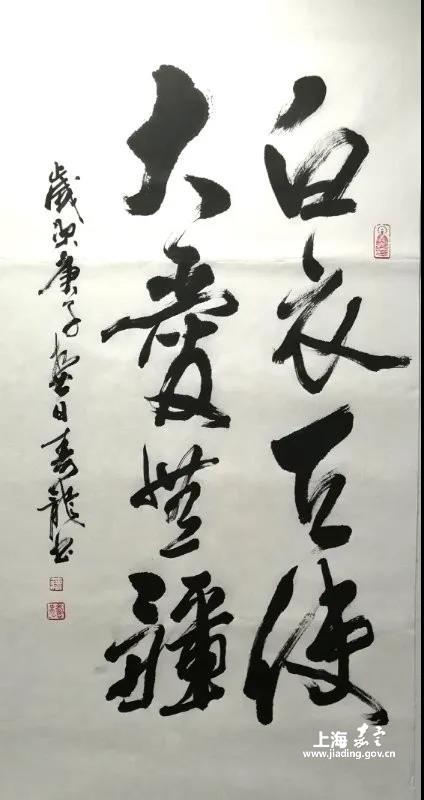 白衣天使
大愛無疆
歲次庚子春日壽龍書
上海嘉定
www.jiading.gov.cn